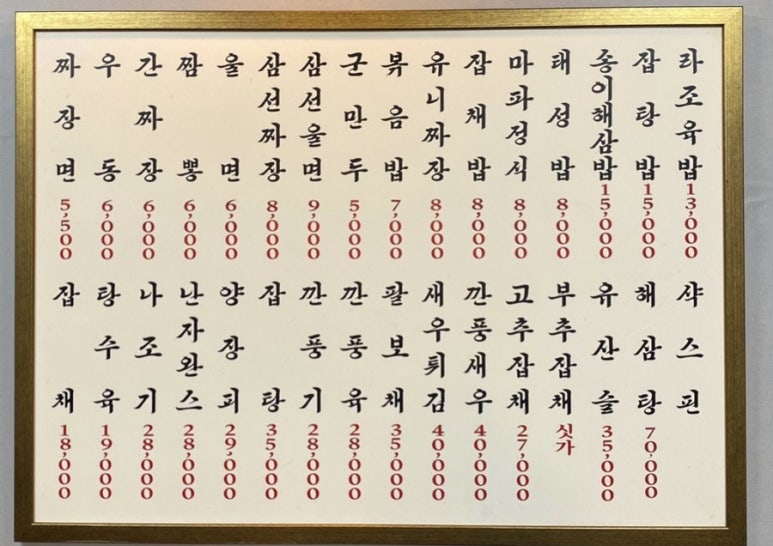 짜장면 5,500
우동 6,000
간짜장 6,000
짬뽕 6,000
울면 6,000
삼선짜장 8,000
삼선울면 9,000
군만두 5,000
볶음밥 7,000
유니짜장 8,000
잡채밥 8,000
마파정식 8,000
태성밥 8,000
송이해삼밥 15,000
잡탕밥 15,000
라조육밥 13,000
잡채 18,000
탕수육 19,000
나조기 28,000
난자완스 28,000
양장피 29,000
잡탕 35,000
깐풍기 28,000
깐풍육 28,000
팔보채 35,000
새우튀김 40,000
깐풍새우 40,000
고추잡채 27,000
부추잡채 싯가
유산슬 35,000
해삼탕 70,000
샥스핀